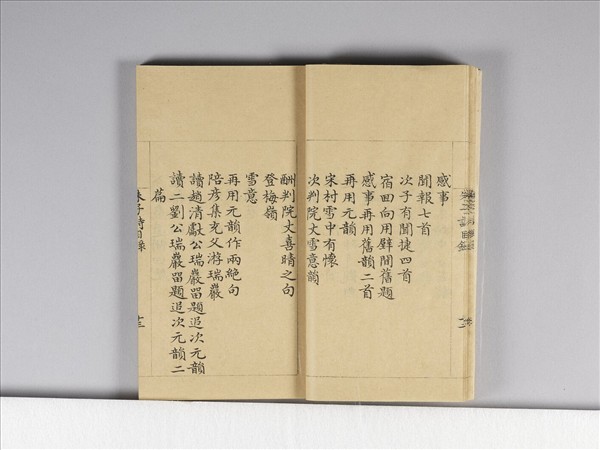 感事
聞報七首
次子有聞捷四首
宿田向用壁間舊題
感事再用舊韻二首
再用元韻
宋村雪中有懷
次判院丈雪意韻
酬判院丈喜晴之句
登梅嶺
雪意
再用元韻作兩絶句
陪彦集充父游瑞巖
讀趙清獻公瑞巖留題追次元韻
讀二劉公瑞巖留題追次元韻二
篇
朱子詩目錄